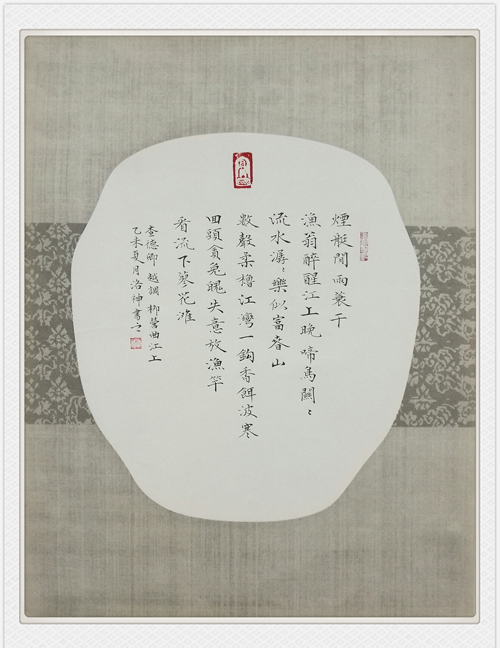 煙艇閒雨蓑干
漁翁醉醒江上晚啼鳥關〻
流水潺〻樂似富春山
數聲柔櫓江灣一鈎香餌波寒
回頭貪兔魄失意放漁竿
看流下蓼花滩
查德卿 越調 柳營曲 江上
乙未夏月洛神書之